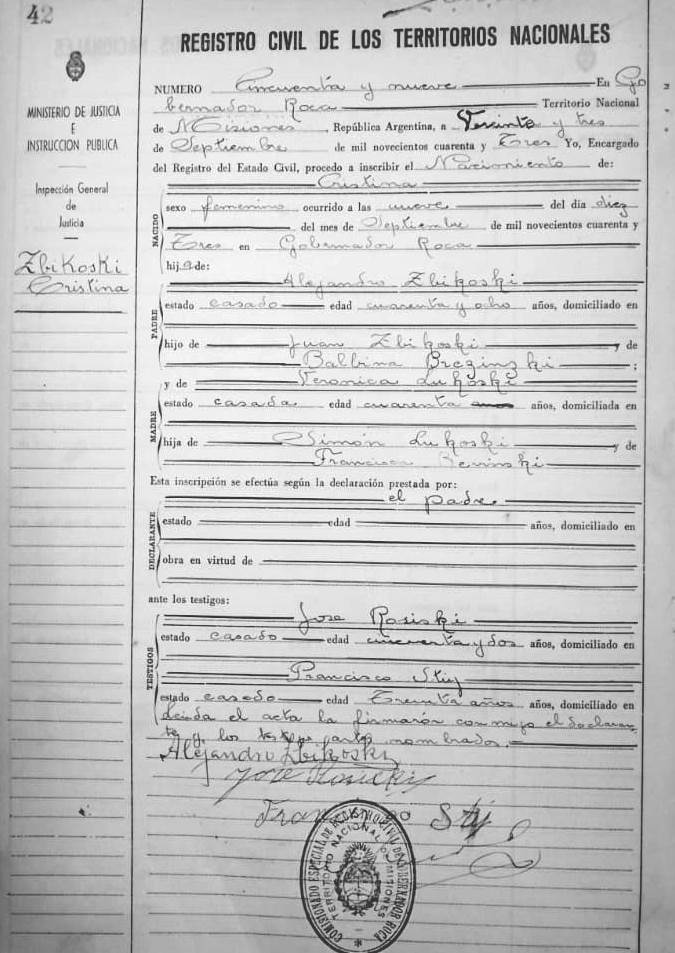 42
REGISTRO CIVIL DE LOS TERRITORIOS NACIONALES
MINISTERIO DE JUSTICIA
E
INSTRUCCION PUBLICA
Inspección General
de
Justicia
Zbikoski
Cristina
NUMERO Cincuenta y nueve En Go
bernador Roca Territorio Nacional
de Misiones, República Argentina, a Veinte y tres
de Septiembre de mil novecientos cuarenta y Tres Yo, Encargado
del Registro del Estado Civil, procedo a inscribir el Nacimiento de:
NACIDO
Cristina
sexo femenino ocurrido a las nueve del día diez
del mes de Septiembre de mil novecientos cuarenta y
Tres en Gobernador Roca
hija de:
PADRE
Alejandro Zbikoski
estado casado edad cuarenta y ocho años, domiciliado en
hijo de Juan Zbikoski y de
Balbina Brezinzki ;
y de Veronica Lukoski
MADRE
estado casada edad cuarenta años, domiciliada en
hija de Simón Lukoski y de
Francisca
Esta inscripción se efectúa según la declaración prestada por:
DECLARANTE
el padre
estado edad años, domiciliado en
obra en virtud de
ante los testigos:
TESTIGOS
Jose Rosiski
estado casado edad cincuenta y dos años, domiciliado en
Francisco Stij
estado casado edad Treinta años años, domiciliado en
Leida el acta la firmaron conmigo el declaran
te y los testigos antes nombrados.
Alejandro Zbikoski
Jose
Francisco Stij
COMISIONADO ESPECIAL DE REGISTRO CIVIL DE GOBERNADOR ROCA
TERRITORIO NACIONAL DE MISIONES